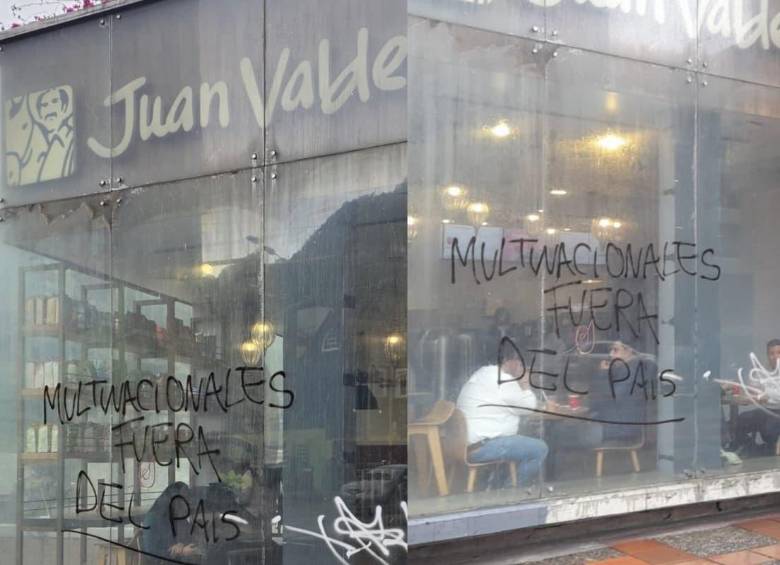 Juan Valde
MULTINACIONALES
FUERA
DEL PAIS
Juan Valde
MULTINACIONALES
FUERA
DEL PAIS